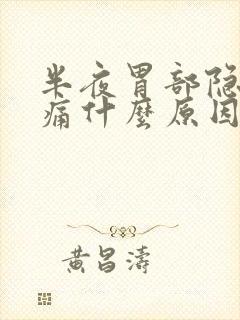 半夜胃部隐
痛什麼原因
黄昌濤